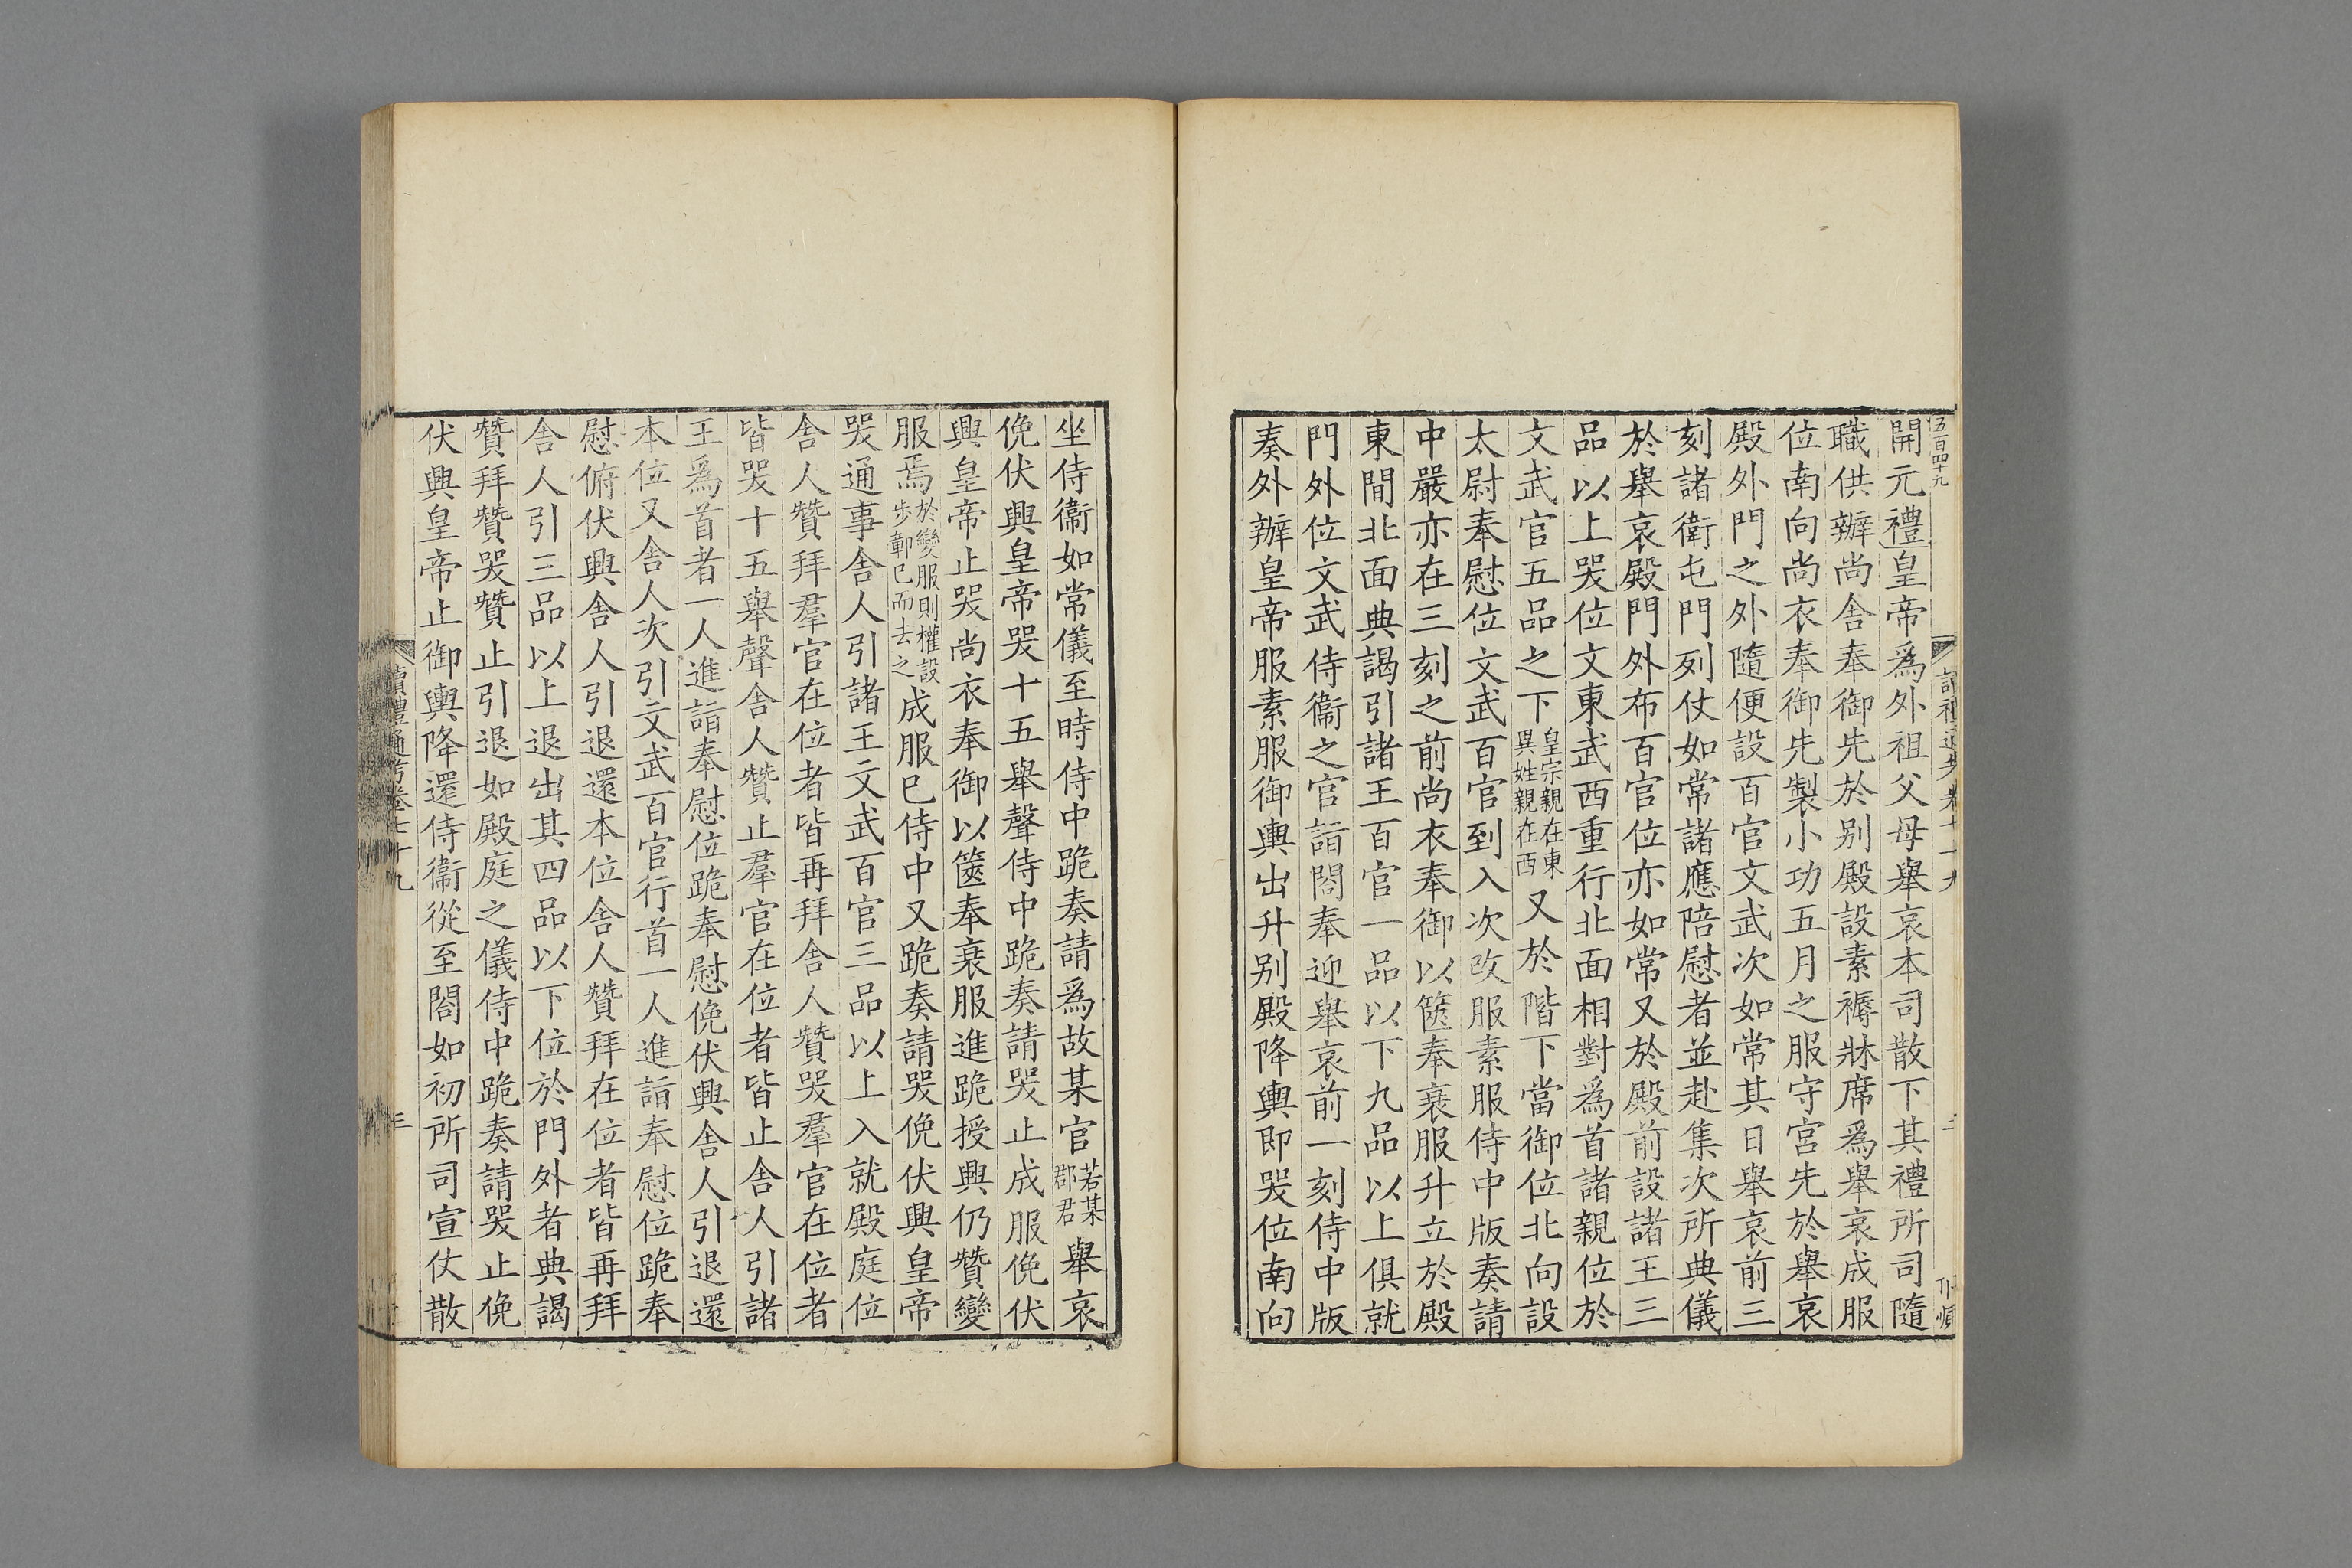 五百四十九
開元禮皇帝爲外祖父母舉哀本司散下其禮所司隨
職供辦尚舍奉御先於别殿設素褥牀席爲舉哀成服
位南向尚衣奉御先製小功五月之服守宮先於舉哀
殿外門之外隨便設百官文武次如常其日舉哀前三
刻諸衛屯門列仗如常諸應陪慰者並赴集次所典儀
於舉哀殿門外布百官位亦如常又於殿前設諸王三
品以上哭位文東武西重行北面相對爲首諸親位於
文武官五品之下皇宗親在東異姓親在西又於階下當御位北向設
太尉奉慰位文武百官到入次改服素服侍中版奏請
中嚴亦在三刻之前尚衣奉御以篋奉衰服升立於殿
東間北面典謁引諸王百官一品以下九品以上俱就
門外位文武侍衞之官詣閤奉迎舉哀前一刻侍中版
奏外辦皇帝服素服御輿出升别殿降輿即哭位南向
坐侍衞如常儀至時侍中跪奏請爲故某官若某郡君舉哀
俛伏興皇帝哭十五舉聲侍中跪奏請哭止成服俛伏
興皇帝止哭尚衣奉御以篋奉衰服進跪授興仍贊變
服焉於變服則權設步鄣已而去之成服已侍中又跪奏請哭俛伏興皇帝
哭通事舍人引諸王文武百官三品以上入就殿庭位
舍人贊拜羣官在位者皆再拜舍人贊哭羣官在位者
皆哭十五舉聲舍人贊止羣官在位者皆止舍人引諸
王爲首者一人進詣奉慰位跪奉慰俛伏興舍人引退還
本位又舍人次引文武百官行首一人進詣奉慰位跪奉
慰俯伏興舍人引退還本位舍人贊拜在位者皆再拜
舍人引三品以上退出其四品以下位於門外者典謁
贊拜贊哭贊止引退如殿庭之儀侍中跪奏請哭止俛
伏興皇帝止御輿降還侍衞從至閤如初所司宣仗散
讀禮通考卷七十九
三